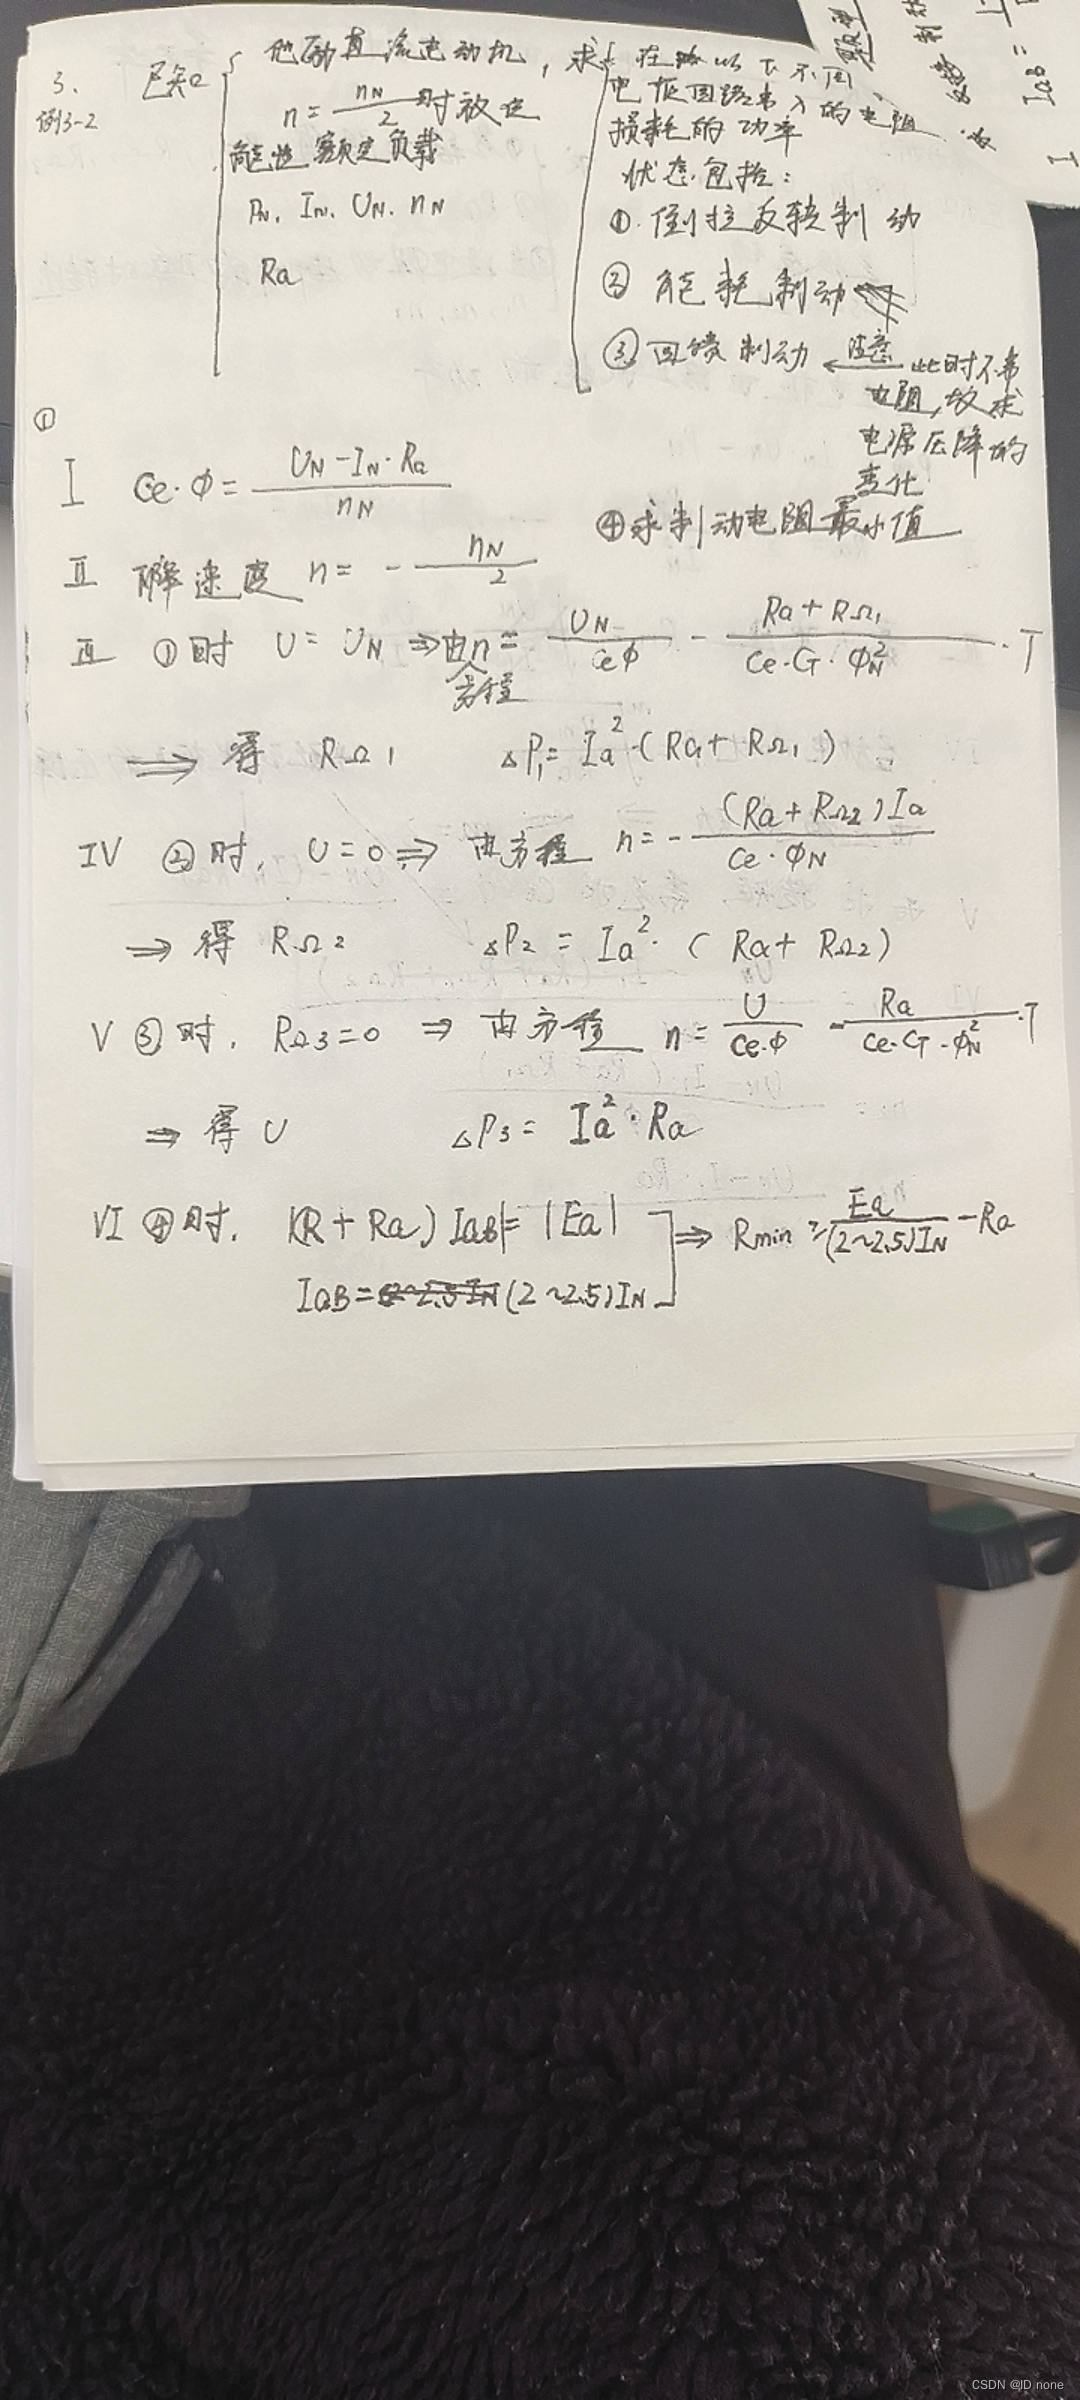 3.
例3-2
已知
他励直流电动机,求
n = nN/2 时放位
能性额定负载
PN、IN、UN、nN
Ra
在 以下不同
电枢回路串入的电阻
损耗的功率
状态包括:
① 倒拉反转制动
② 能耗制动
③ 回馈制动 ← 注意 此时不串
电阻,故求
电源压降的
变化
④ 求制动电阻最小值
①
I Ce·Φ = (UN - IN·Ra)/nN
II 解速度 n = - nN/2
III ①时 U = UN ⇒ 由n = UN/CeΦ - (Ra + RΩ1)/(Ce·CT·ΦN²)·T
方程
⇒ 得 RΩ1 △P1 = Ia²·(Ra + RΩ1)
IV ②时, U = 0 ⇒ 由方程 n = - (Ra + RΩ2)Ia/(Ce·ΦN)
⇒ 得 RΩ2 △P2 = Ia²·(Ra + RΩ2)
V ③时, RΩ3 = 0 ⇒ 由方程 n = U/(Ce·Φ) - Ra/(Ce·CT·ΦN²)·T
⇒ 得 U △P3 = Ia²·Ra
VI ④时, |(R + Ra) IaB| = |Ea| ⇒ Rmin ≥ Ea/((2~2.5)IN) - Ra
IaB = (2~2.5)IN
CSDN @ID none